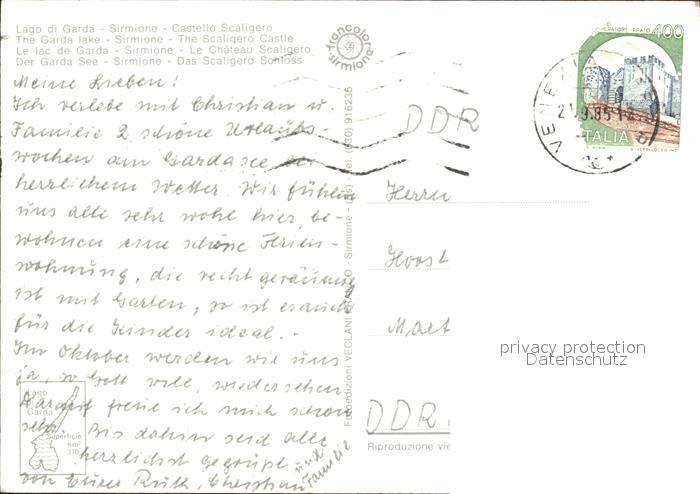 Lago di Garda - Sirmione - Castello Scaligero
The Garda lake - Sirmione - The Scaligero Castle
Le lac de Garda - Sirmione - Le Château Scaligero
Der Garda See - Sirmione - Das Scaligero Schloss
francolore
sirmione
Meine Lieben!
Ich verlebe mit Christian u.
Familie 2 schöne Urlaubs-
wochen am Gardasee bei
herrlichem Wetter. Wir fühlen
uns alle sehr wohl hier, be-
wohnen eine schöne Ferien-
wohnung, die recht geräumig
ist mit Garten, so ist es auch
für die Kinder ideal. -
Im Oktober werden wir uns
ja, so Gott will, wiedersehen
Darauf freue ich mich schon
sehr. Bis dahin seid alle
herzlichst gegrüßt
von Eurer Ruth, Christian und
Familie
Lago
di
Garda
Superficie
Km²
370
Fotoedizioni VECLANI FRANCO - Sirmione - (BS) - Tel. (030) 916235
400
ITALIA
VENEZIA
DDR
Herrn
Horst
DDR
Riproduzione vie
privacy protection
Datenschutz